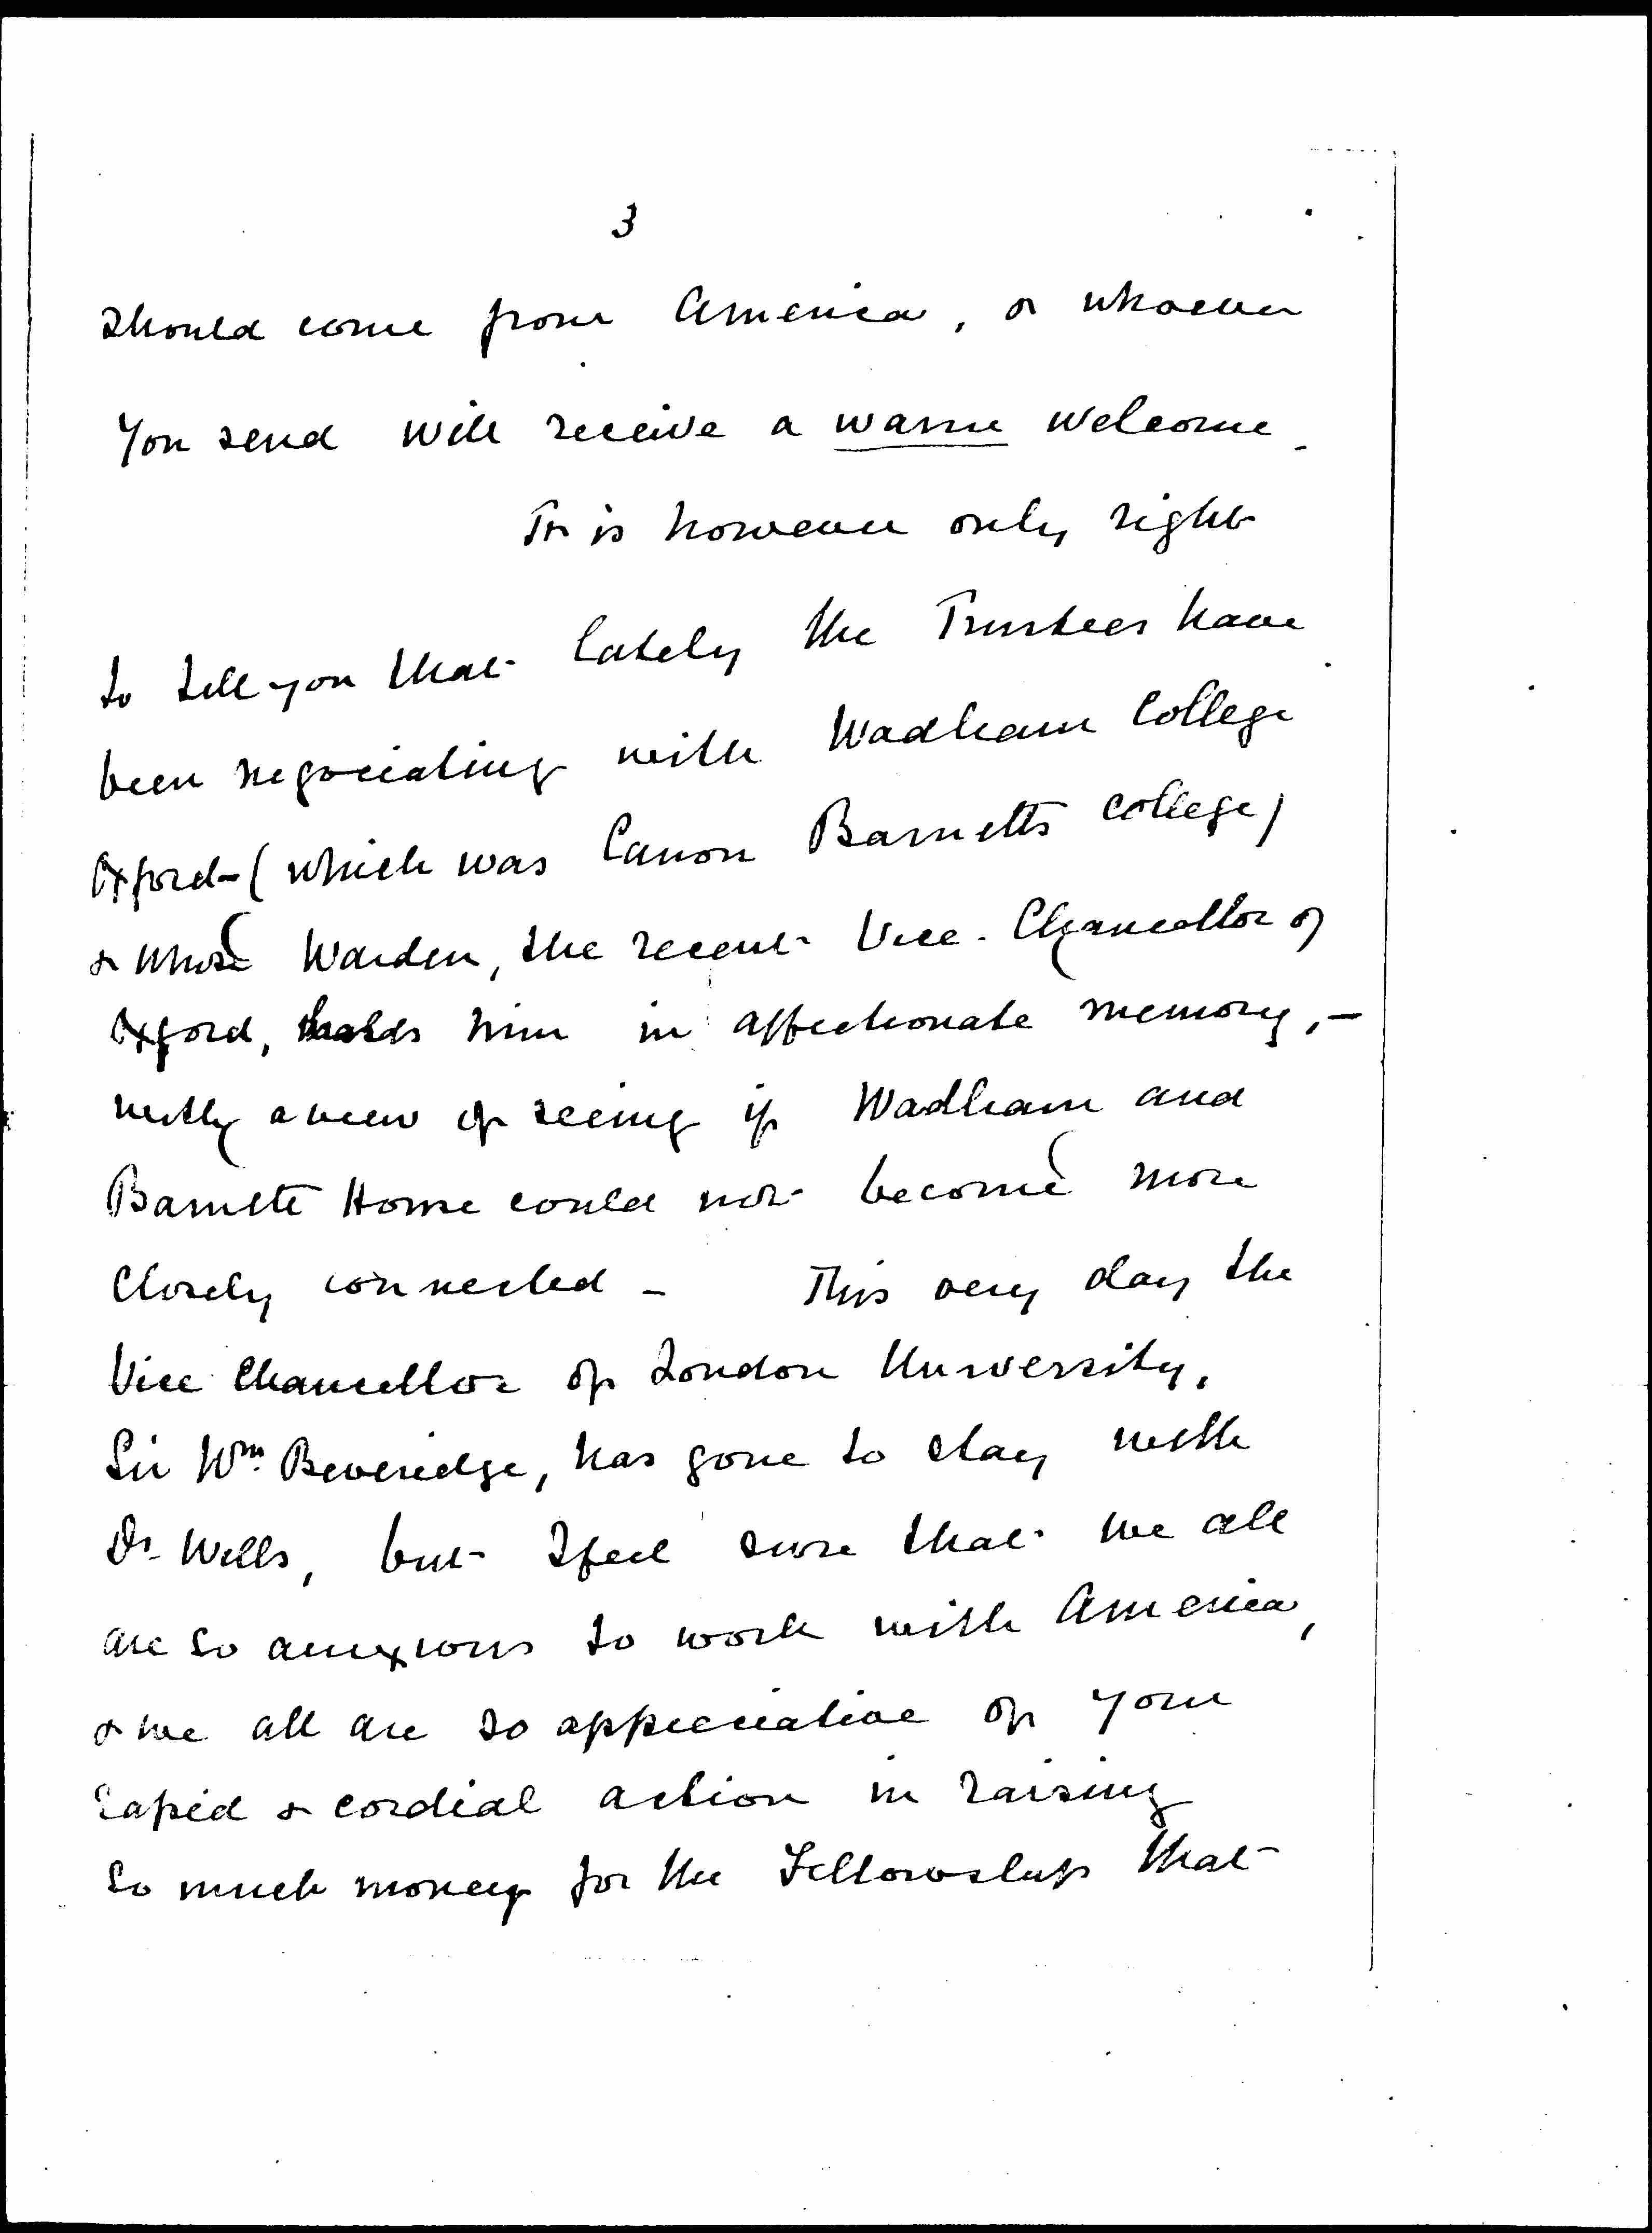 3
should come from America, & whoever
you send will receive a warm welcome.
It is however only right
to tell you that lately the Trustees have
been negociating with Wadham College
Oxford - (which was Canon Barnetts college)
& whose Warden, the recent Vice-Chancellor of
Oxford, holds him in affectionate memory, -
with a view of seeing if Wadham and
Barnett House could not become more
closely connected - This very day the
Vice Chancellor of London University,
Sir Wm. Beveridge, has gone to stay with
Dr. Wells, but I feel sure that we all
are so anxious to work with America,
& we all are so appreciative of your
rapid & cordial action in raising
so much money for the Fellowship that